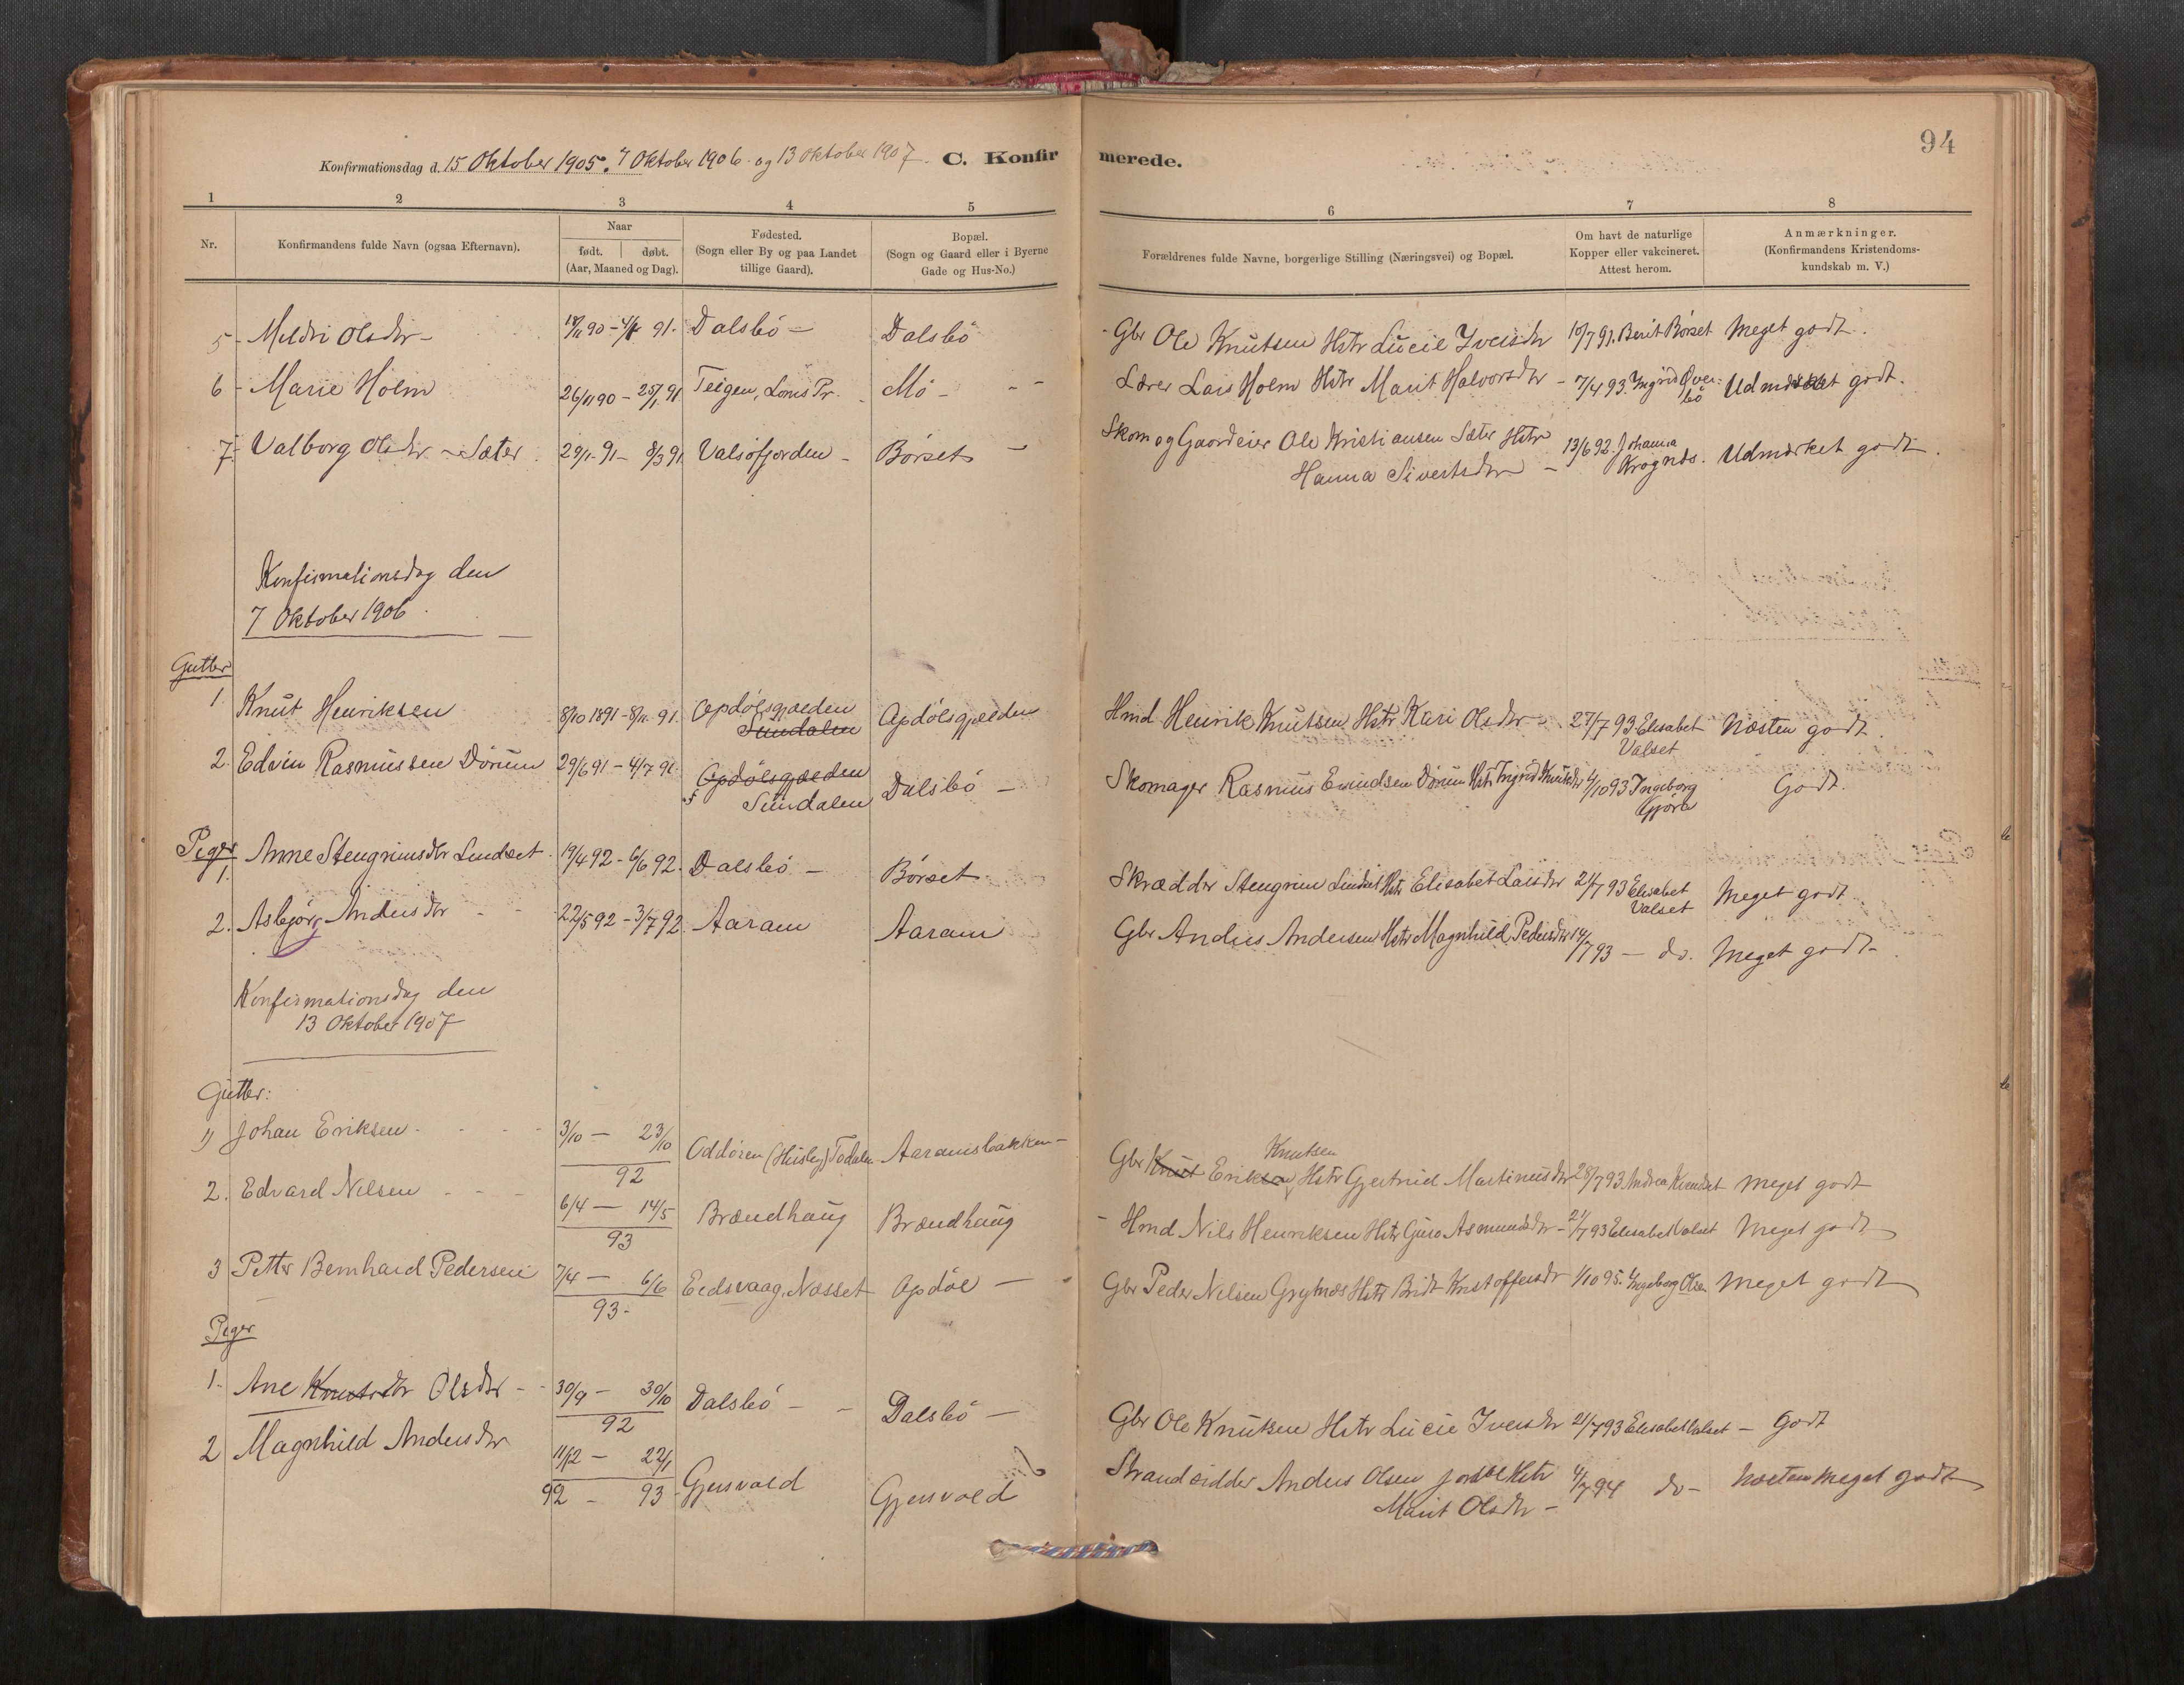 94
Konfirmationsdag d. 15 Oktober 1905. 7 Oktober 1906 og 13 Oktober 1907. C. Konfirmerede.
1 2 3 4 5 6 7 8
Nr. Konfirmandens fulde Navn (ogsaa Efternavn). Naar født. døbt. (Aar, Maaned og Dag). Fødested. (Sogn eller By og paa Landet tillige Gaard). Bopæl. (Sogn og Gaard eller i Byerne Gade og Hus-No.) Forældrenes fulde Navne, borgerlige Stilling (Næringsvei) og Bopæl. Om havt de naturlige Kopper eller vakcineret. Attest herom. Anmærkninger. (Konfirmandens Kristendomskundskab m. V.)
5 - Meldri Olsdtr - 90 - 91. Dalsbö - Dalsbö - Gbr Ole Knutsen Hstr Lucie Iversdtr 10/7 91. Berit Börset Meget godt.
6 - Marie Holm 26/11 90 - 25/1 91 Teigen, Loms Pr. Mö - Lærer Lars Holm Hstr Marit Halvorsdtr - 7/4 93. Ingrid Øverbö Udmærket godt.
7. Valborg Olsdtr - Sæter 29/1 91 - 8/3 91 Valsöfjorden - Börset - Skom og Gaardeier Ole Kristiansen Sæter Hstr
Hanna Sivertsdtr - 13/6 92. Johanna Krognæs. Udmærket godt.
Konfirmationsdag den
7 Oktober 1906.
Gutter
1. Knut Henriksen 8/10 1891 - 8/11 91. Opdölsgjælden Sundalen Opdölsgjælden Hmd Henrik Knutsen Hstr Kari Olsdtr - 27/7 93 Elisabet Valset Næsten godt.
2. Edvin Rasmussen Dörum 29/6 91 - 4/7 91. Opdölsgjælden Sundalen Dalsbö - Skomager Rasmus Evindsen Dörum Hstr Ingrid Knutsdtr 4/10 93 Ingeborg Gjöra Godt.
Piger
1. Anne Stengrimsdtr Lindset. 19/4 92 - 6/6 92. Dalsbö - Börset Skrædder Stengrim Lindset Hstr Elisabet Larsdtr 21/7 93 Elisabet Valset Meget godt
2. Asbjörg Andersdtr 22/5 92 - 3/7 92. Aaram Aaram Gbr Anders Andersen Hstr Magnhild Pedersdtr 14/7 93 - do. Meget godt -
Konfirmationsdag den
13 Oktober 1907
Gutter:
1) Johan Eriksen 3/10 - 23/10 92 Oddören (Husby) Todalen Aaramsbakken - Gbr Knut Eriksen Knutsen Hstr Gjertrud Martinusdtr 28/7 93 Andrea Kvendset Meget godt
2. Edvard Nilsen 6/4 - 14/5 93 Brændhaug Brændhaug - Hmd Nils Henriksen Hstr Guro Asmundsdtr - 21/7 93 Elisabet Valset Meget godt
3 Petter Bernhard Pedersen 7/4 - 6/6 93 - Eidsvaag, Næsset Opdöl - Gbr Peder Nilsen Grytnæs Hstr Brit Kristoffersdtr 1/10 95. Ingeborg Olsen Meget godt
Piger
1. Ane Knutsdtr Olsdtr - 30/9 - 30/10 92 Dalsbö - Dalsbö - Gbr Ole Knutsen Hstr Lucie Iversdtr 21/7 93 Elisabet Valset - Godt
2 Magnhild Andersdtr 11/12 - 22/1 92 - 93 Gjersvold Gjersvold Strandsidder Anders Olsen Hstr
Marit Olsdtr - 4/7 94 do - Næsten meget godt